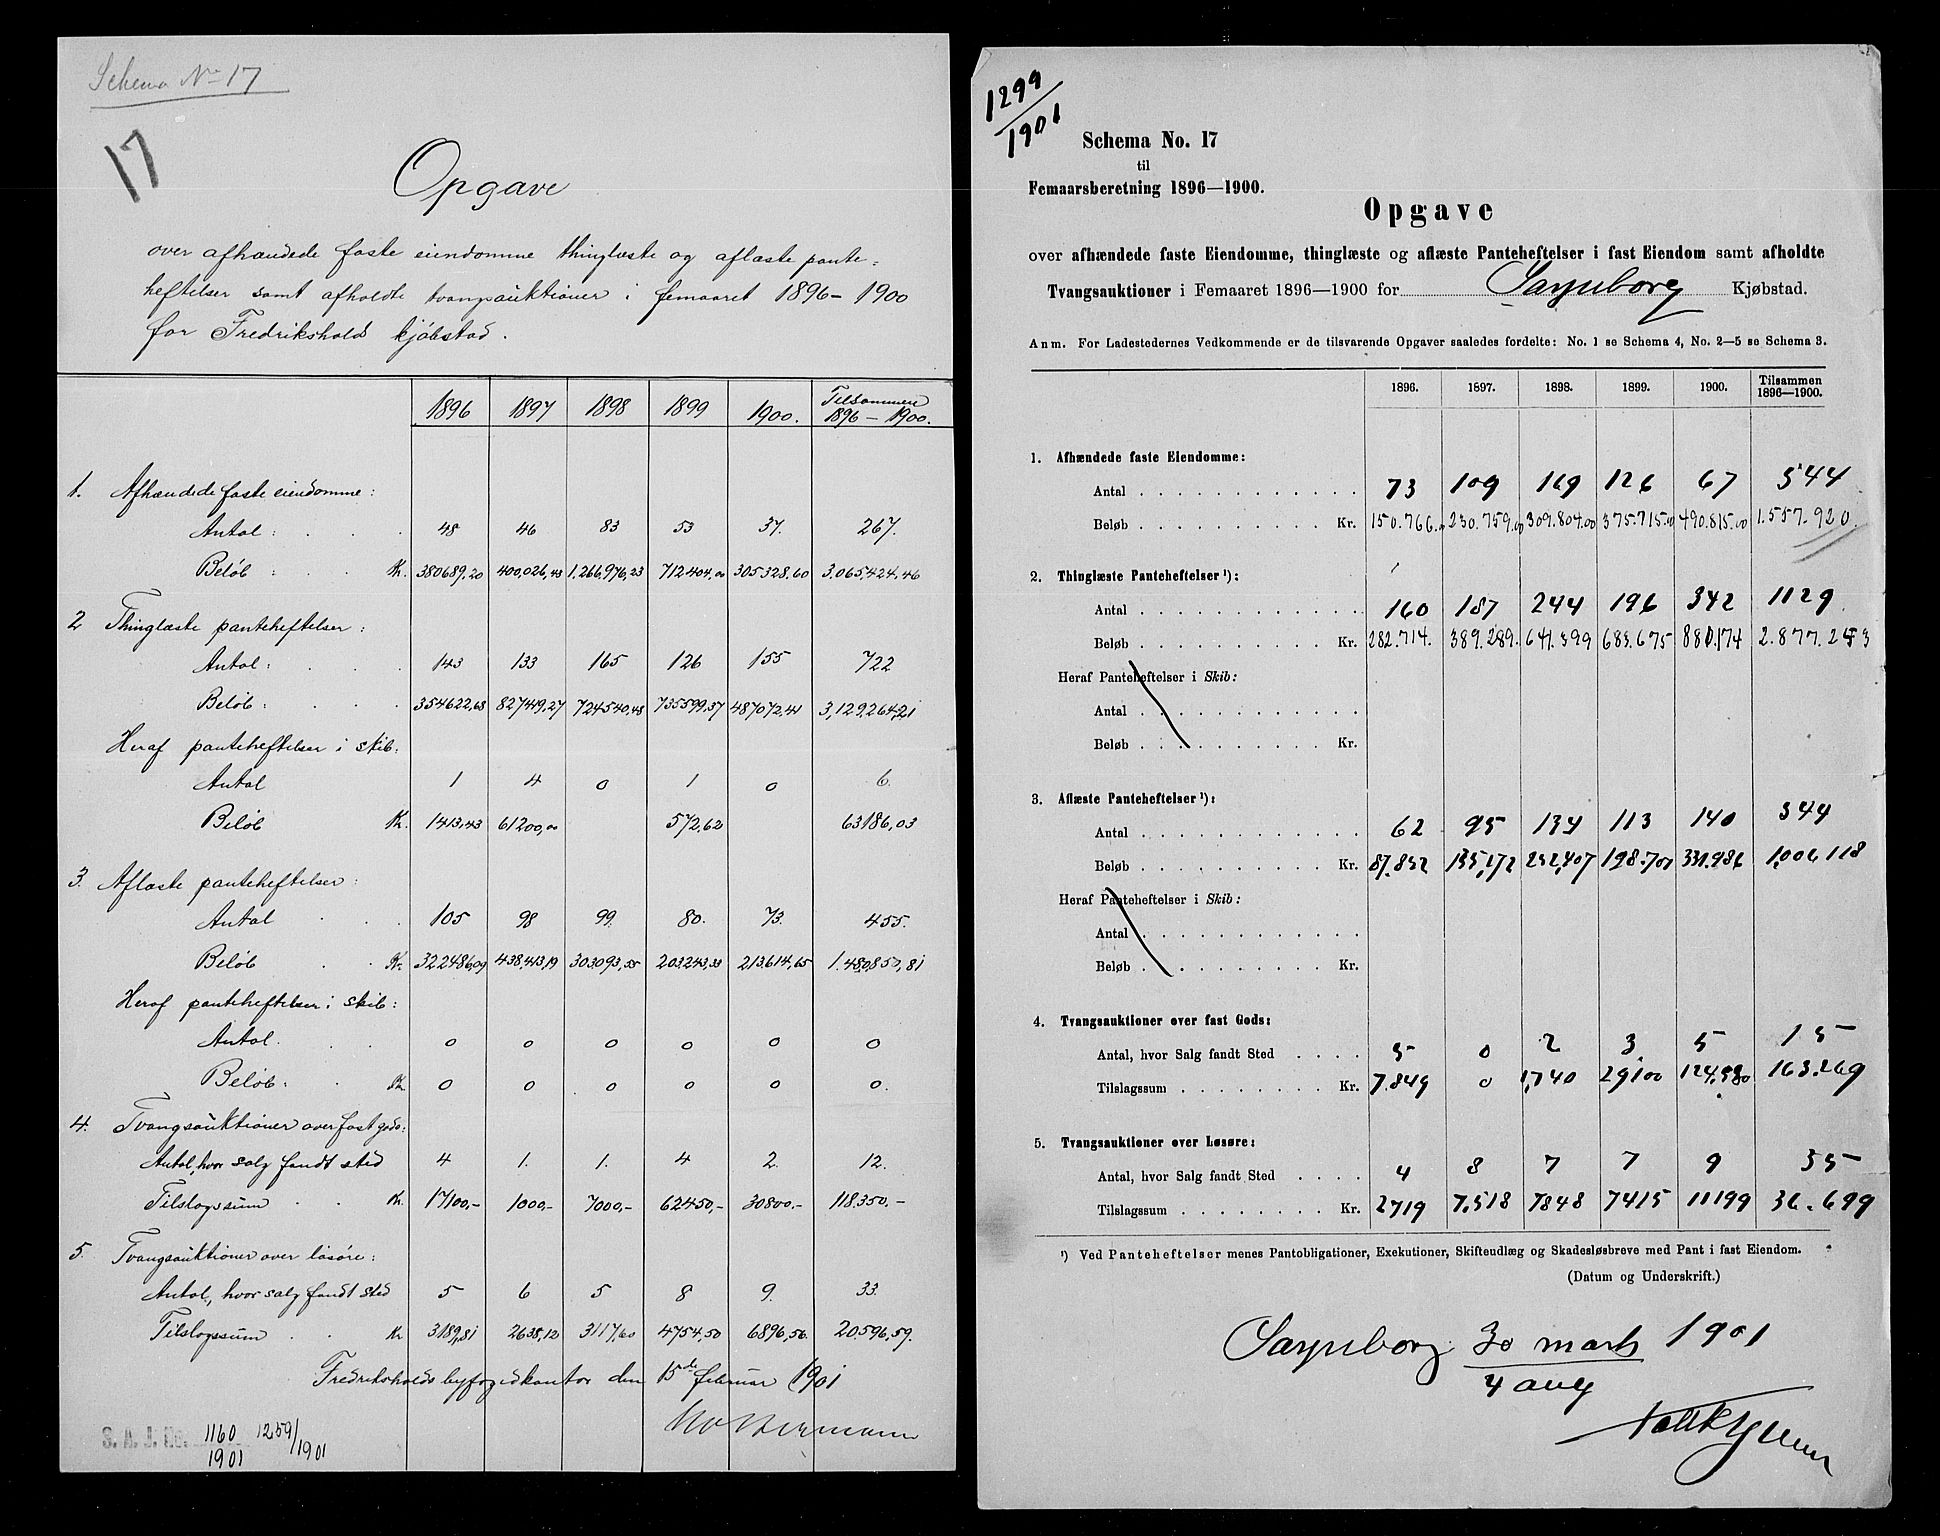 Schema No 17
17
Opgave
over afhændede faste eiendomme thinglæste og aflæste pante=
heftelser samt afholdte tvangsauktioner i femaaret 1896–1900
for Fredrikshald kjøbstad.
1896 1897 1898 1899 1900. Tilsammen 1896–1900.
1. Afhændede faste eiendomme:
Antal: 48 46 83 53 37. 267.
Beløb: Kr. 380689,20 400,026,43 1,266,976,23 712404,00 305328.60 3,065,424,46
2 Thinglæste panteheftelser:
Antal: 143 133 165 126 155 722
Beløb: 354622,68 827449,27 724540,48 735599,37 487072,41 3,129,264,21
Heraf panteheftelser i skib:
Antal 1 4 0 1 0 6.
Beløb Kr. 1413,43 61200,00 572,62 63186,03
3. Aflæste panteheftelser:
Antal 105 98 99. 80. 73. 455.
Beløb Kr. 322486,09 438,413,19 303093,55 203243,33 213614,65 1.480,850,81
Heraf panteheftelser i skib:
Antal. 0 0 0 0 0 0
Beløb: Kr. 0 0 0 0 0 0.
4. Tvangsauktioner over fast gods:
Antal, hvor salg fandt sted 4 1. 1. 4 2. 12.
Tilslagssum Kr. 17100,- 1000,- 7000,- 62450,- 30800,- 118.350.-
5. Tvangsauktioner over løsøre:
Antal, hvor salg fandt sted 5 6 5 8 9. 33.
Tilslagssum Kr 3189,81 2638,12 3117,60 4754,50 6896,56. 20,596,59.
Fredrikshalds byfogedkontor den 15de februar 1901
S. A. J. No. 1160/1901 1259/1901
1299/1901
Schema No. 17
til
Femaarsberetning 1896—1900.
Opgave
over afhændede faste Eiendomme, thinglæste og aflæste Panteheftelser i fast Eiendom samt afholdte
Tvangsauktioner i Femaaret 1896—1900 for Sarpsborg Kjøbstad.
Anm. For Ladestedernes Vedkommende er de tilsvarende Opgaver saaledes fordelte: No. 1 se Schema 4, No. 2—5 se Schema 3.
1896. 1897. 1898. 1899. 1900. Tilsammen 1896—1900.
1. Afhændede faste Eiendomme:
Antal 73 109 169 126 67 544
Beløb Kr. 150.766.0 230.759.00 309.804.00 375.715.00 490.815.00 1.557.920.
2. Thinglæste Panteheftelser ¹):
Antal 160 187 244 196 342 1129
Beløb Kr. 282.714. 389.289. 641.399 683.675 880.174 2.877.253
Heraf Panteheftelser i Skib:
Antal
Beløb Kr.
3. Aflæste Panteheftelser ¹):
Antal 62 95 134 113 140 544
Beløb Kr. 87.852 135,172 252,407 198.701 331.986 1,006 118
Heraf Panteheftelser i Skib:
Antal
Beløb Kr.
4. Tvangsauktioner over fast Gods:
Antal, hvor Salg fandt Sted 5 0 2 3 5 15
Tilslagssum Kr. 7.849 0 1,740 29100 124,580 163.269
5. Tvangsauktioner over Løsøre:
Antal, hvor Salg fandt Sted 4 8 7 7 9 35
Tilslagssum Kr. 2719 7.518 7848 7415 11199 36.699
¹) Ved Panteheftelser menes Pantobligationer, Exekutioner, Skifteudlæg og Skadesløsbreve med Pant i fast Eiendom.
(Datum og Underskrift.)
Sarpsborg 30 marts 1901
4 aug